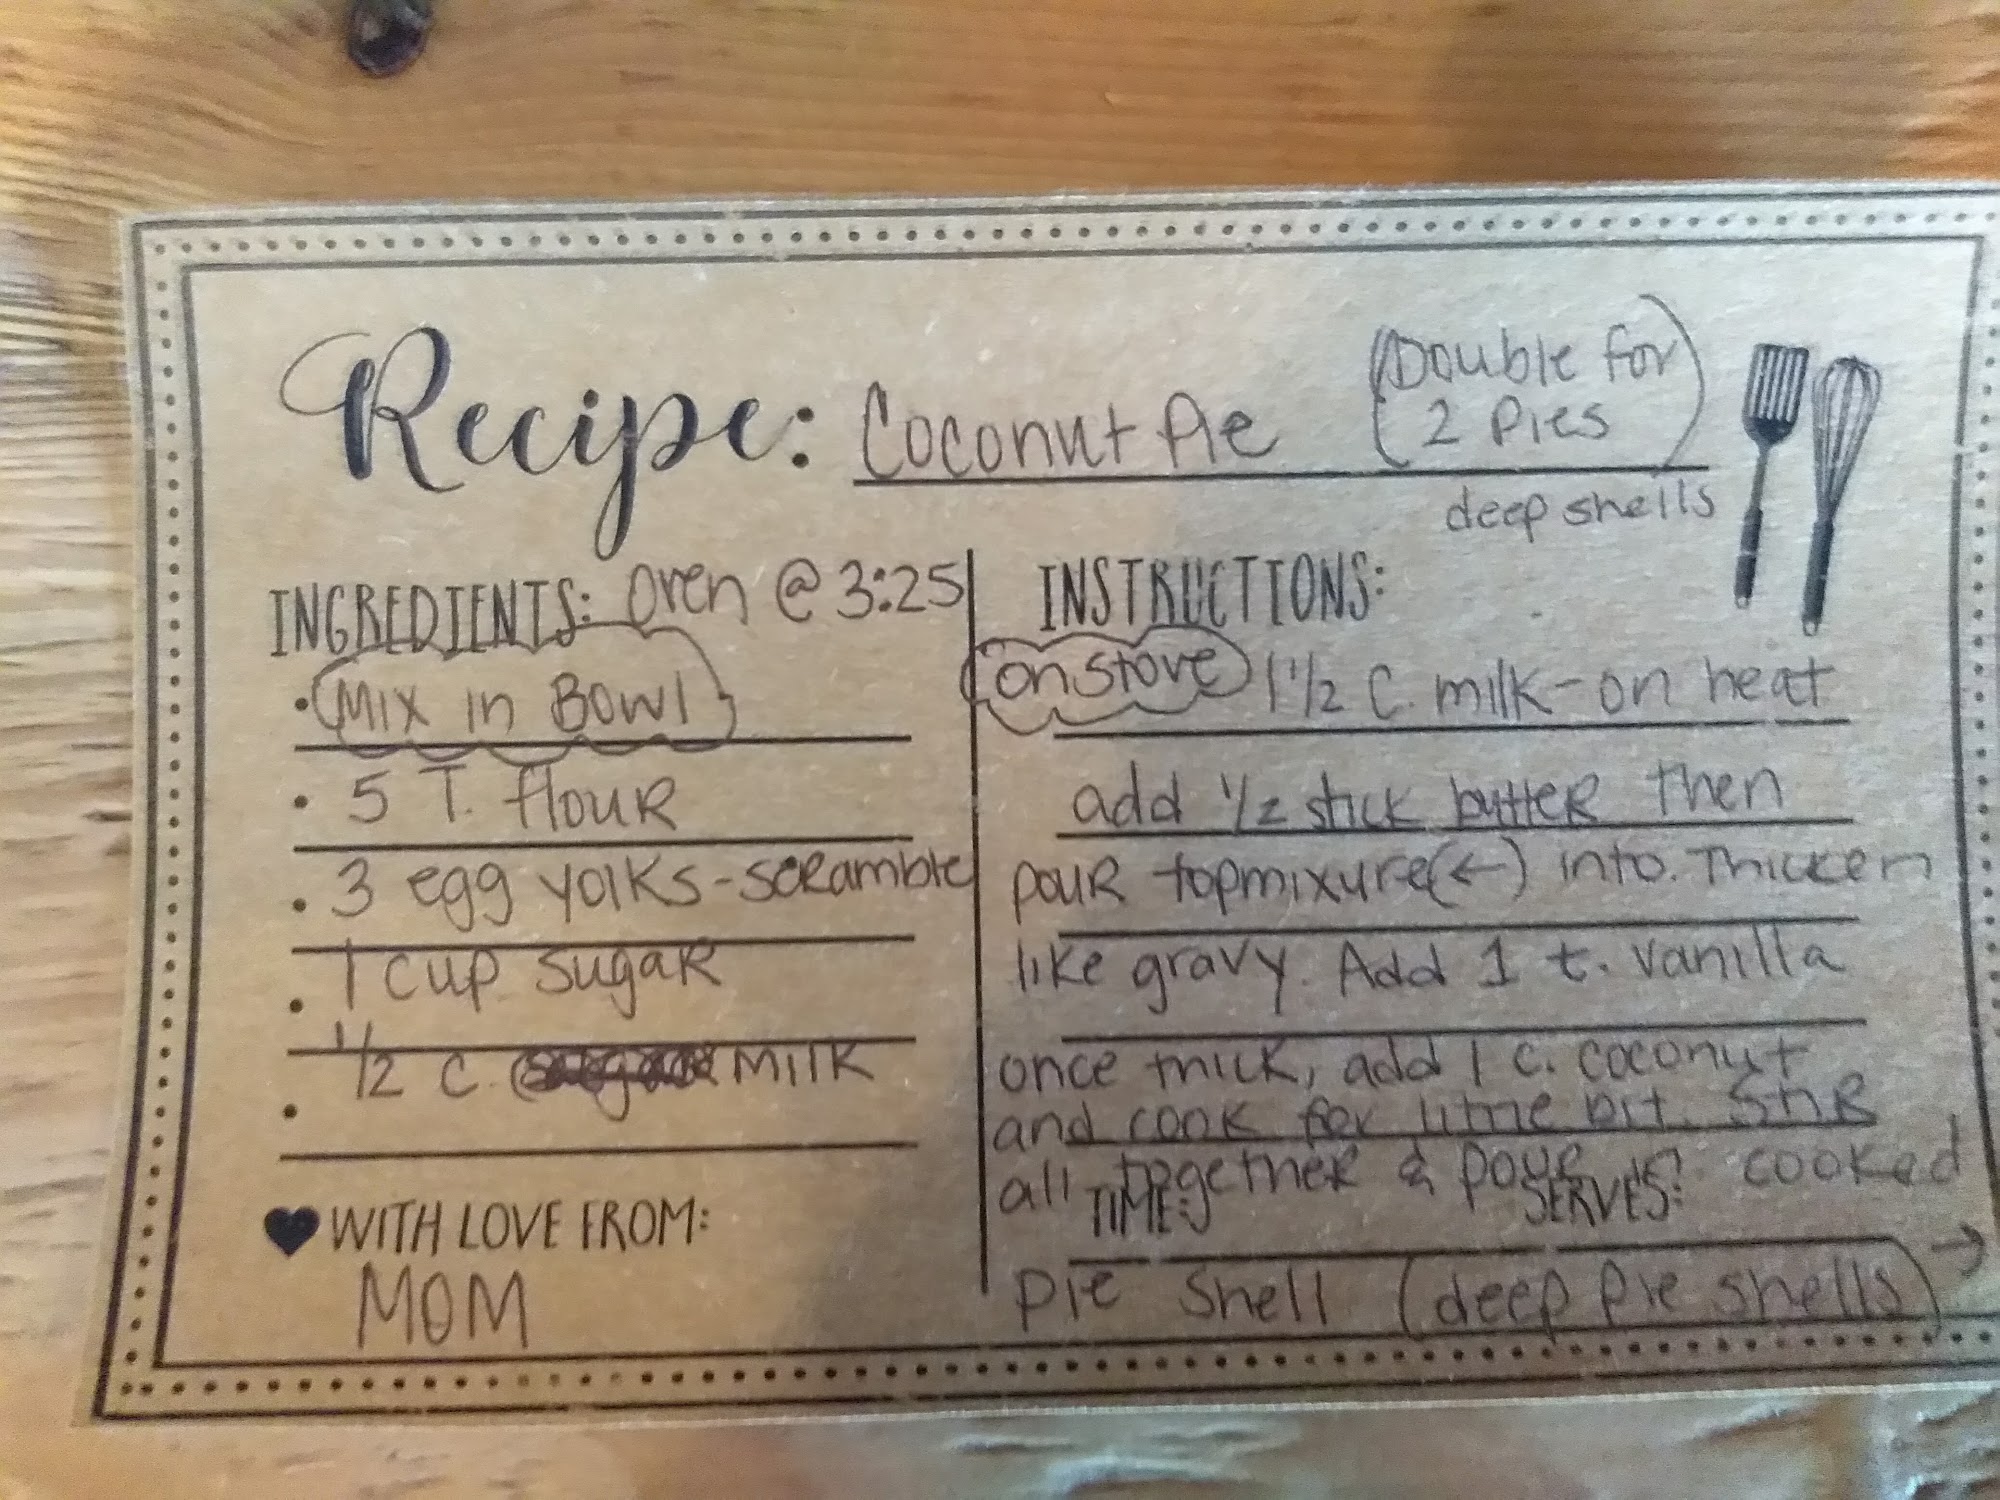 Recipe: Coconut Pie (Double for
2 Pies)
deep shells
INGREDIENTS: Oven @ 3:25
• Mix in Bowl
• 5 T. flour
• 3 egg yolks - scramble
• 1 cup sugar
• 1/2 c. milk
♥ WITH LOVE FROM:
MOM
INSTRUCTIONS:
on stove 1 1/2 C. milk - on heat
add 1/2 stick butter then
pour topmixure (←) into. Thicken
like gravy. Add 1 t. vanilla
once thick, add 1 c. coconut
and cook for little bit. Stir
all together & pour in cooked
TIME: SERVES:
pie shell (deep pie shells) →